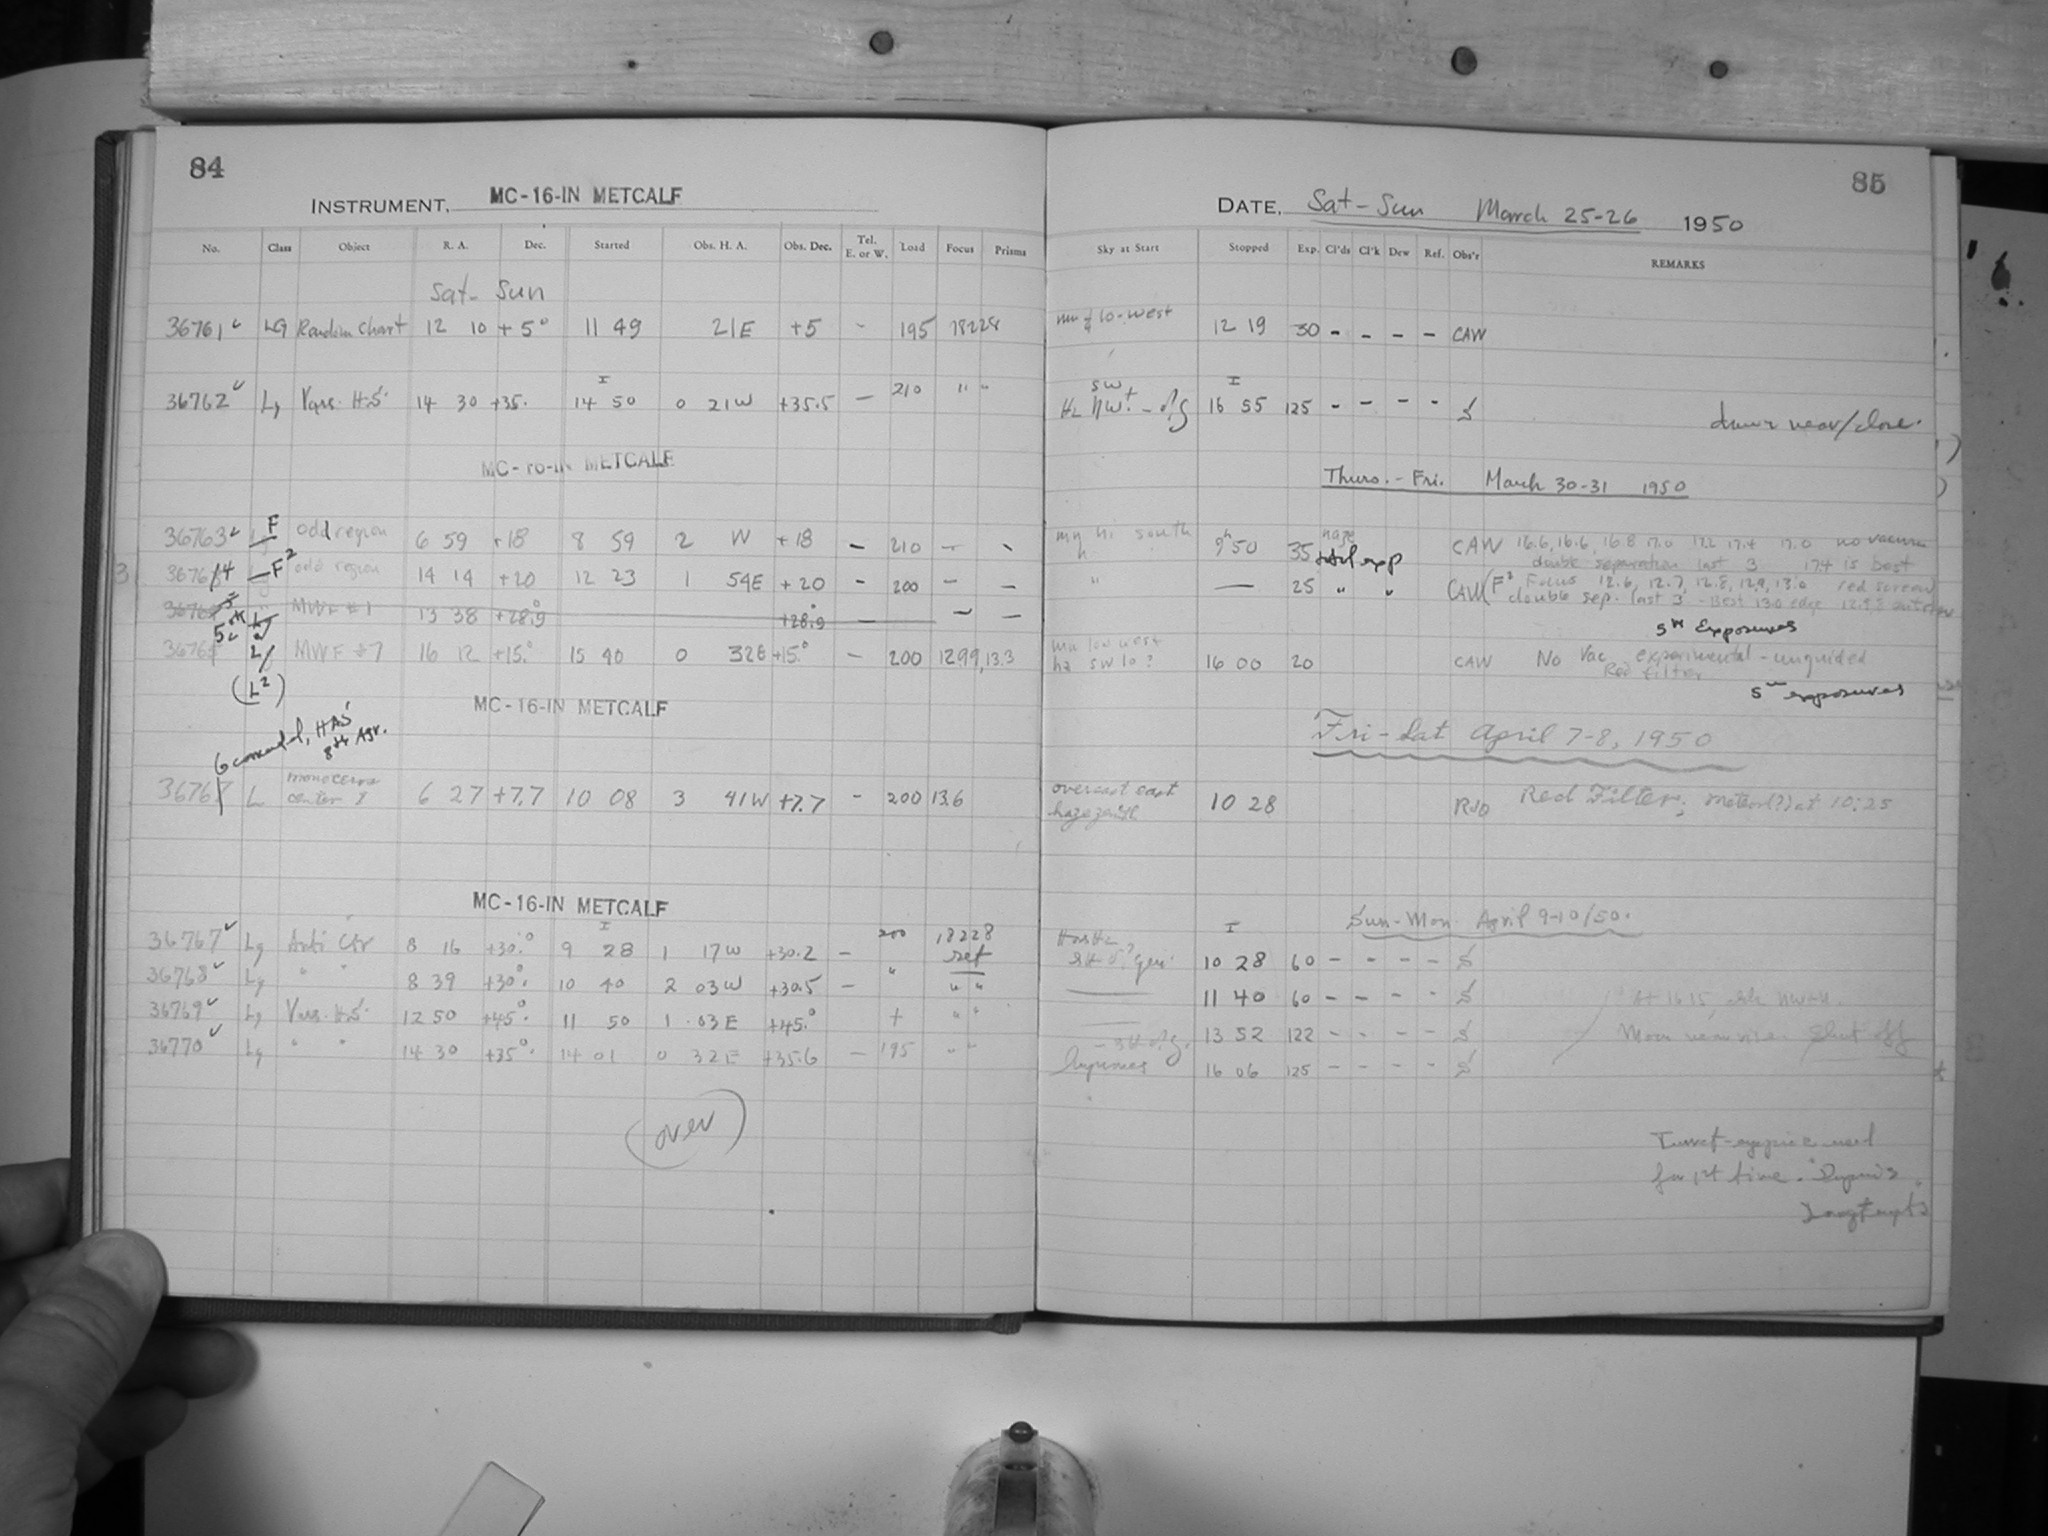 84
INSTRUMENT, MC-16-IN METCALF
No. Class Object R. A. Dec. Started Obs. H. A. Obs. Dec. Tel. E. or W. Load Focus Prisms
Sat- Sun
36761 LG Random Chart 12 10 +5° 11 49 21E +5 - 195 18228
36762 Lg Vars. H.S. 14 30 +35. 14 50 0 21W +35.5 - 210 " "
MC-16-IN METCALF
36763 F odd region 6 59 +18 8 59 2 W +18 - 210 - -
36764 F² odd region 14 14 +20 12 23 1 54E +20 - 200 - -
MWF #1 13 38 +28.9° +28.9° - - -
3676 L MWF #7 16 12 +15.° 15 40 0 32E +15.° - 200 1299, 13.3
(L²)
MC-16-IN METCALF
HAS
8th Apr.
3676 L monoceros center I 6 27 +7.7 10 08 3 41W +7.7 - 200 13.6
MC-16-IN METCALF
36767 Lg Anti Ctr 8 16 +30.° 9 28 1 17W +30.2 - 200 18228 set
36768 Lg " " 8 39 +30.° 10 40 2 03W +30.5 - " " "
36769 Lg Vars. H.S. 12 50 +45.° 11 50 1 03E +45.° + " "
36770 Lg " " 14 30 +35°. 14 01 0 32E +35.6 - 195 " "
(over)
85
DATE, Sat-Sun March 25-26 1950
Sky at Start Stopped Exp. Cl'ds Cl'k Dew Ref. Obs'r REMARKS
mn lo-west 12 19 30 - - - - CAW
SW
16 55 125 - - - - S
Thurs. - Fri. March 30-31 1950
mn hi south 9h 50 35 haze total exp CAW 16.6, 16.6, 16.8 17.0 17.2 17.4 17.0 no vacuum
double separation last 3 17.4 is best
" - 25 " " CAW (F² Focus 12.6, 12.7, 12.8, 12.9, 13.0 red screen
double sep. last 3 - Best 13.0 edge
5 exposures
mn low west
hz SW lo? 16 00 20 CAW No Vac experimental - unguided
Red filter
5 exposures
Fri-Sat April 7-8, 1950
overcast east
haze zenith 10 28 RJD Red Filter; meteor(?) at 10:25
Sun-Mon. April 9-10/50.
10 28 60 - - - - S
11 40 60 - - - - S
13 52 122 - - - - S
16 06 125 - - - - S
used
for 1st time.